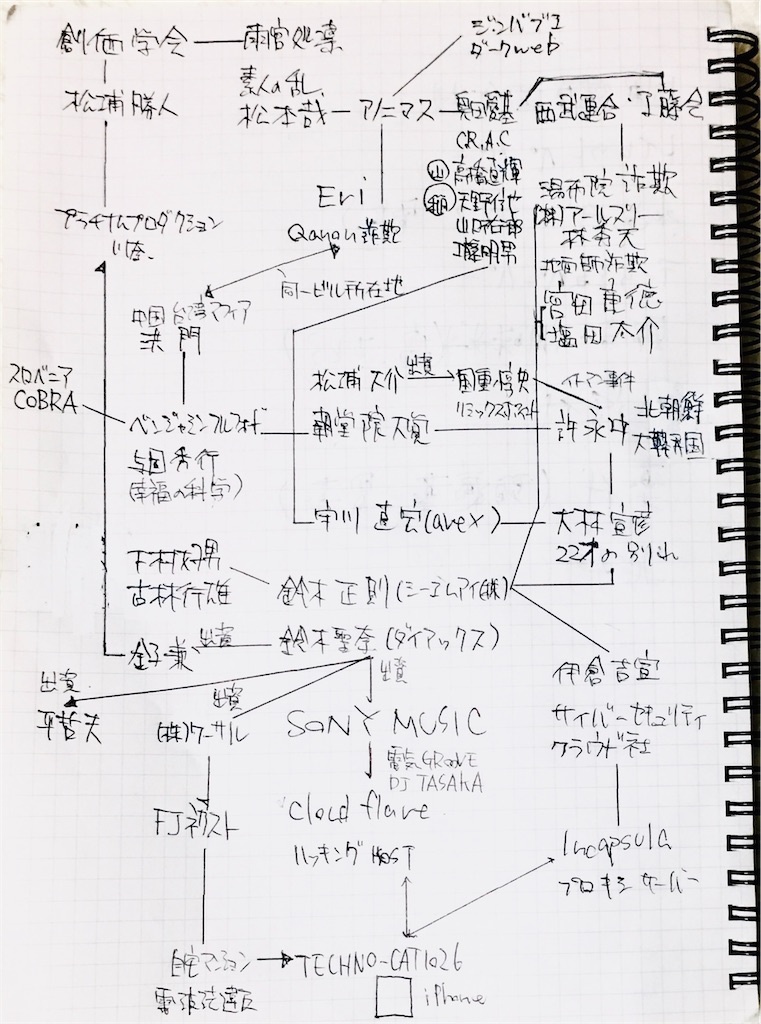 創価学会
雨宮処凛
ジンバブエ
ダークweb
松浦勝人
素人の乱、
松本哉
アノニマス
奥田愛基
西武連合・工藤会
C.R.A.C
山
高橋直輝
天野
Eri
Qanon詐欺
プラチナムプロダクション
湯布院詐欺
(株)アールズリー
林秀天
地面師詐欺
宮田重徳
塩田大介
同一ビル所在地
中国台湾マフィア
洪門
松浦大介
出資
國重惇史
イトマン事件
リミックスポイント
スロベニア
COBRA
ベンジャミンフルフォード
朝堂院大覚
許永中
北朝鮮
大韓民国
与国秀行
(幸福の科学)
宇川直宏(avex)
大林宣彦
22才の別れ
下村好男
古林行雄
鈴木正則(シーエムアイ(株))
金子兼
出資
鈴木聖奈(ダイアックス)
出資
出資
出資
平哲夫
(株)ワーサル
SONY MUSIC
電気GROOVE
DJ TASAKA
伊倉吉宣
サイバーセキュリティ
クラウド社
FJネクスト
Cloud flare
ハッキングHOST
Incapsula
プロキシサーバー
自宅マンション
電波発達区
TECHNO-CAT1026
iPhone